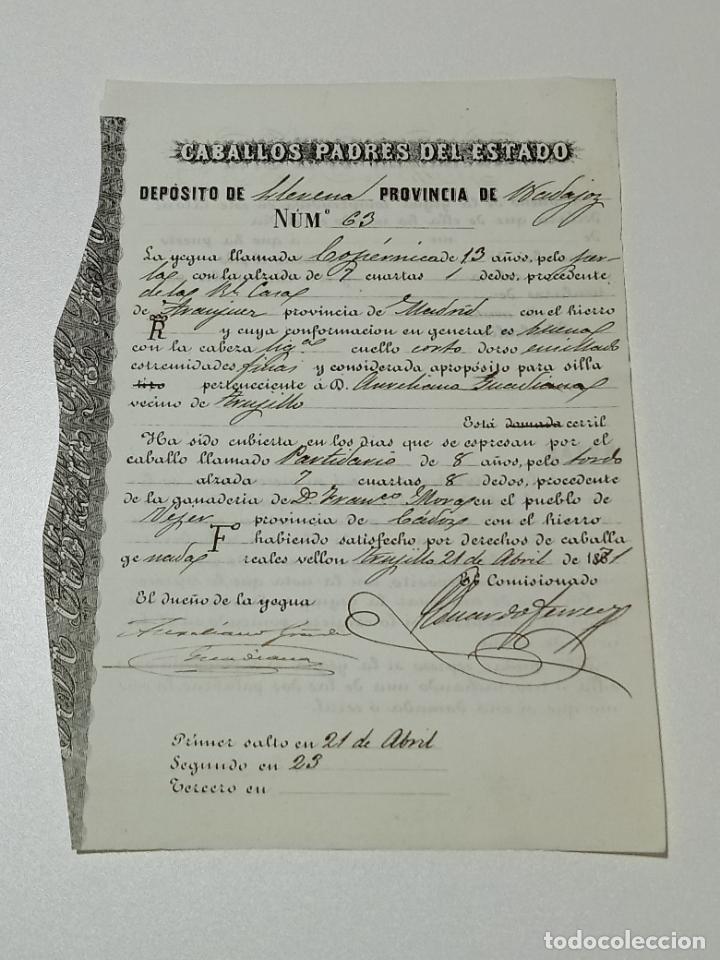 CABALLOS PADRES DEL ESTADO
DEPÓSITO DE Llerena PROVINCIA DE Badajoz
NÚMº 63
La yegua llamada Copérnica de 13 años, pelo per-
la con la alzada de 7 cuartas 1 dedos, procedente
de las Rs. Casas
de Aranjuez provincia de Madrid con el hierro
R y cuya conformacion en general es buena
con la cabeza lig.ª cuello corto dorso ensillado
estremidades finas y considerada apropósito para silla
tiro perteneciente á D. Aureliano Guadiana
vecino de Trujillo
Está domada cerril
Ha sido cubierta en los dias que se espresan por el
caballo llamado Partidario de 8 años, pelo tordo
alzada 7 cuartas 8 dedos, procedente
de la ganaderia de D. Franco. Mora en el pueblo de
Vejer provincia de Cádiz con el hierro
F habiendo satisfecho por derechos de caballa
ge nada reales vellon Trujillo 21 de Abril de 1871
El Comisionado
El dueño de la yegua
Eduardo
Aureliano
Guadiana
Primer salto en 21 de Abril
Segundo en 23
Tercero en
todocoleccion
todocoleccion.net